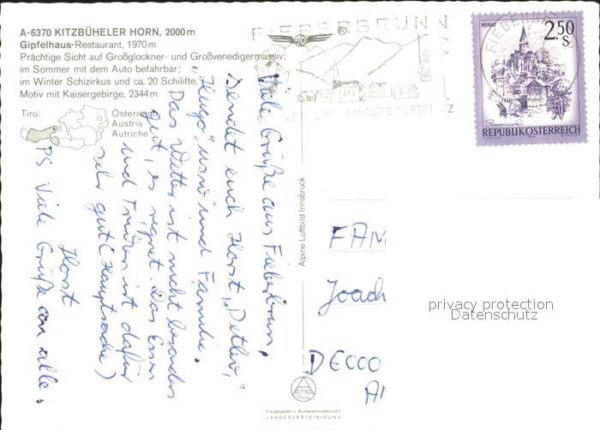 A-6370 KITZBÜHELER HORN, 2000 m
Gipfelhaus-Restaurant, 1970 m
Prächtige Sicht auf Großglockner- und Großvenedigermassiv;
im Sommer mit dem Auto befahrbar;
im Winter Schizirkus und ca. 20 Schilifte.
Motiv mit Kaisergebirge, 2344 m
Tirol
Österreich
Austria
Autriche
FIEBERBRUNN
WINTERSPORTPLATZ
2.50
S
REPUBLIK ÖSTERREICH
Viele Grüße aus Fieberbrun,
sendet euch Horst, "Detlev,"
"Hugo", usw und Familie.
Das Wetter ist nicht besonders
gut, es regnet. Das Essen
und Trinken ist dafür
sehr gut (Hauptsache)
Horst
PS Viele Grüße an alle!
Alpine Luftbild Innsbruck
FAM
Joach
D
privacy protection
Datenschutz
Freigegeben v. Bundesministerium f.
LANDESVERTEIDIGUNG